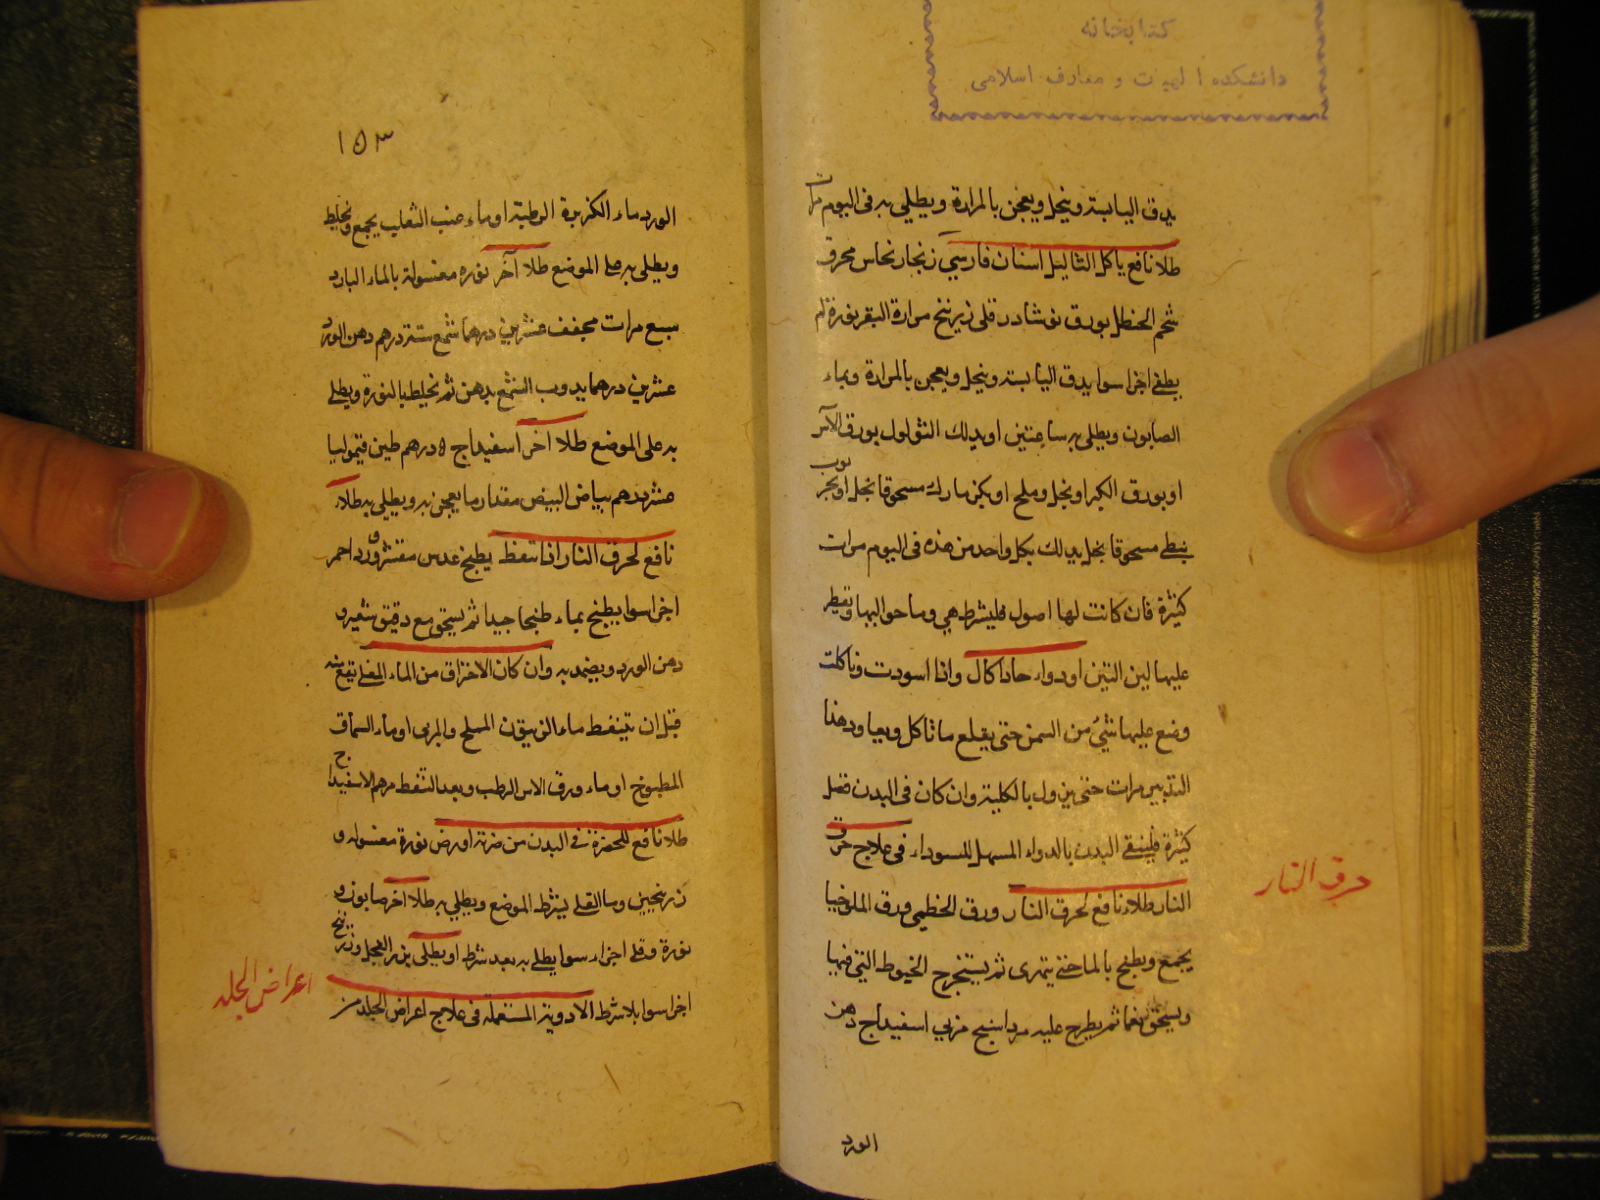 كتابخانه
دانشكده الهيات و معارف اسلامى
يدق اليابسة وينخل ويعجن بالمرارة ويطلى به فى اليوم مرات
طلا نافع ياكل الثاليل اسنان فارسي زنجار نحاس محرق
شحم الحنظل بورق نوشادر قلى زرنيخ مرارة البقر نورة لم
يطفى اجزا سوا يدق اليابسة وينخل ويعجن بالمرارة وبماء
الصابون ويطلى به ساعتين او يدلك الثؤلول بورق الآس
او بورق الكبر او بخل وملح او بكزمازك مسحوقا بخل او بخر نوب
نبطى مسحوقا بخل يدلك بكل واحد من هذه فى اليوم مرات
كثيرة فان كانت لها اصول فليشرط هي وما حواليها ويقطر
عليها لبن التين او دواء حاد اكال واذا اسودت وتاكلت
وضع عليها شئ من السمن حتى يقلع ما تاكل ويعاود هذا
التدبير مرات حتى يزول بالكلية وان كان فى البدن فضل
كثيرة فلينقى البدن بالدواء المسهل للسوداء فى علاج حرق
النار طلاء نافع لحرق النار ورق الخطمي ورق الملوخيا
يجمع ويطبخ بالما حتى يتهرى ثم يستخرج الخيوط التي فيها
ويسحق نعما ثم يطرح عليه مرداسنج مربي اسفيداج دهن
حرق النار
الورد
١٥٣
الورد ماء الكزبرة الرطبة او ماء عنب الثعلب يجمع ويخلط
ويطلى به على الموضع طلا آخر نوره مغسولة بالماء البارد
سبع مرات مجفف عشرين درهما شمع ستة درهم دهن الورد
عشرين درهما يدوب الشمع بدهن ثم يخلط بالنورة ويطلى
به على الموضع طلا اخر اسفيداج ٥ درهم طين قيموليا
عشر درهم بياض البيض مقدار ما يعجن به ويطلى به طلاء
نافع لحرق النار اذا تنفط يطبخ عدس مقشر وورد احمر
اجزا سوا يطبخ بماء طبخا جيدا ثم يسحق مع دقيق شعير و
دهن الورد ويضمد به وان كان الاحتراق من الماء المغلى يقع منه
قبل ان يتنفط ماء الزيتون المملح والمربى او ماء السماق
المطبوخ او ماء ورق الاس الرطب وبعد التنفط مرهم الاسفيداج
طلا نافع للخضرة فى البدن من ضربة او رض نورة مغسوله و
زرنيخين وما القلى يشرط الموضع ويطلى به طلا اخر صابون و
نورة وقلى اجزاء سوا يطلى به بعد شرط او يطلى بزر الفجل وزرنيخ
اجزا سوا بلا شرط الادوية المستعملة فى علاج اعراض الجلد من
اعراض الجلد